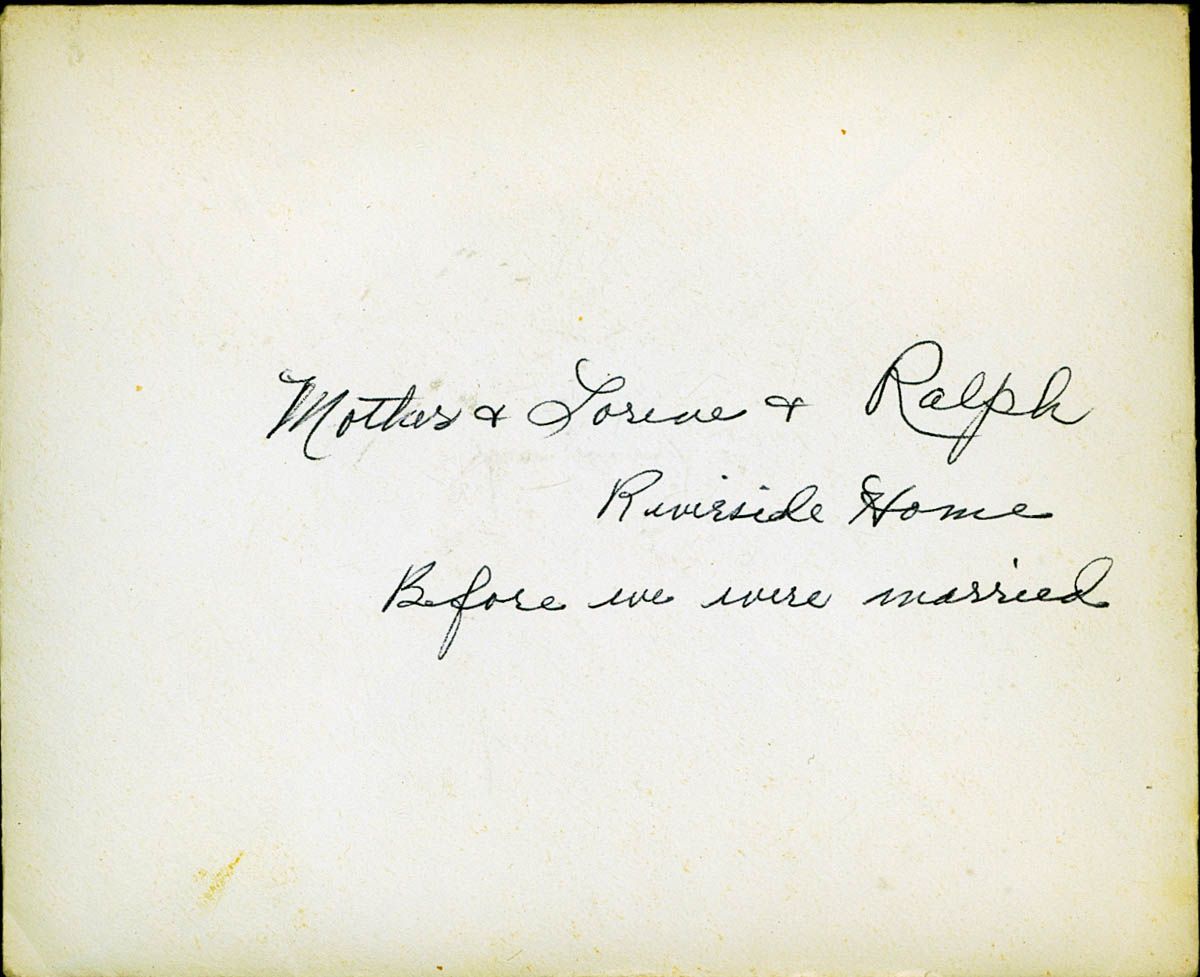 Mother & Lorene & Ralph
Riverside Home
Before we were married